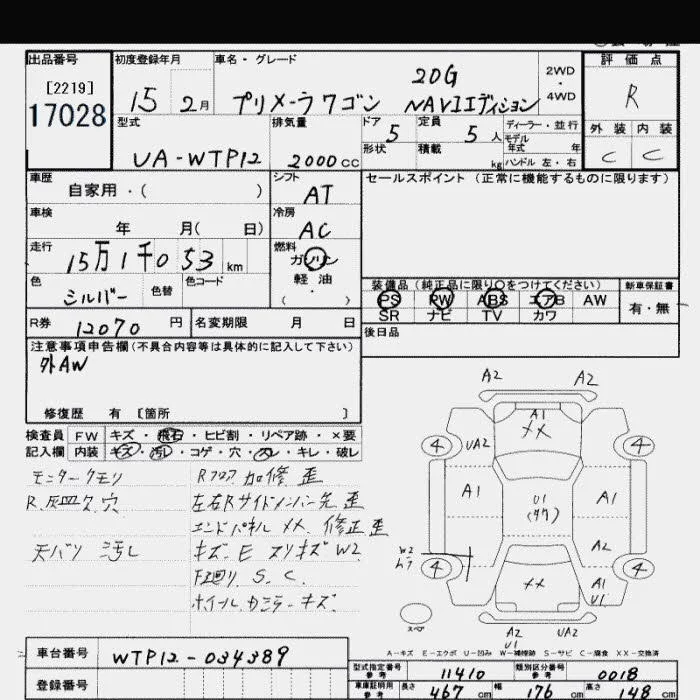 出品番号
[2219]
17028
初度登録年月
15 2月
車名・グレード
20G
プリメーラワゴン NAVIエディション
2WD
・
4WD
評価点
R
外装 内装
C C
型式
UA-WTP12
排気量
2000cc
ドア 5
定員 5人
ディーラー・並行
形状
積載 kg
モデル年式 年
ハンドル 左・右
車歴
自家用・( )
シフト
AT
セールスポイント(正常に機能するものに限ります)
車検
年 月( 日)
冷房
AC
走行
15万1千053km
燃料
ガソリン
軽油
( ・ )
色
シルバー
色替
色コード
装備品(純正品に限り○をつけてください)
新車保証書
PS PW ABS エアB AW
SR ナビ TV カワ
有・無
R券 12070円
名変期限 月 日
後日品
注意事項申告欄(不具合内容等は具体的に記入して下さい)
外AW
修復歴 有 [箇所 ]
検査員 FW キズ・飛石・ヒビ割・リペア跡・×要
記入欄 内装 キズ・汚レ・コゲ・穴・スレ・キレ・破レ
モニタークモリ
R.灰皿ク穴
天バリ 汚し
Rフロア加修 歪
左右Rサイドメンバー先 歪
エンドパネル XX 修正歪
キズ.E スリキズ W2
下廻り S.C.
ホイールカバーキズ
A2 A2
A1
XX
4 UA2 4
A1 U1 A1
A2
W2
4 4
XX A1
U1
スペア
A2 UA2
U1
A-キズ E-エクボ U-凹み W-補修跡 S-サビ C-腐食 XX-交換済
車台番号 WTP12-034389
登録番号
型式指定番号 参考 11410
類別区分番号 参考 0018
車庫証明用 参考 長さ 467cm 幅 176cm 高さ 148cm